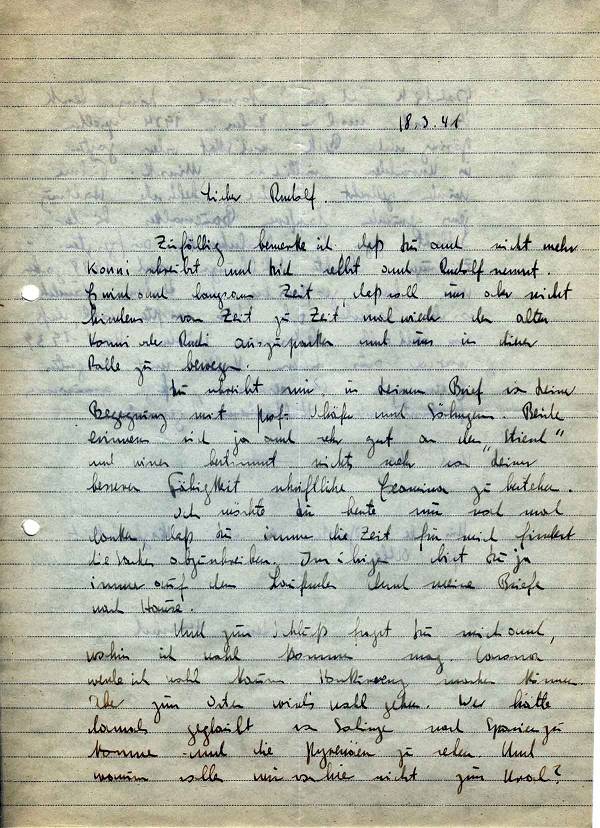 18.3.41
Lieber Rudolf.
Zufällig bemerke ich daß Du auch nicht mehr
Konni schreibst und Dich selbst auch Rudolf nennst.
Es wird auch langsam Zeit, daß soll uns aber nicht
hindern von Zeit zu Zeit mal wieder den alten
Konni oder Rudi auszupacken und uns in dieser
Rolle zu bewegen.
Du schreibst mir in deinem Brief von deiner
Begegnung mit Prof. Schäfer und. Beide
erinnern sich ja auch sehr gut an den
und wissen bestimmt nichts mehr von "deiner
besseren Fähigkeit schriftliche Examina zu bestehen.
Ich möchte dir heute nur noch mal
danken, daß Du immer die Zeit für mich findest
die Sachen abzuschreiben. Im übrigen bist Du ja
immer auf dem Laufenden durch meine Briefe
nach Hause.
Und zum Schluß fragst Du mich auch,
wohin ich wohl kommen mag.
werde ich wohl kaum Konkurrenz machen können.
Aber zum Osten wird's wohl gehen. Wer hätte
damals geglaubt von nach Spanien zu
kommen und die Pyrenäen zu sehen. Und
warum sollen wir von hier nicht zum Ural?